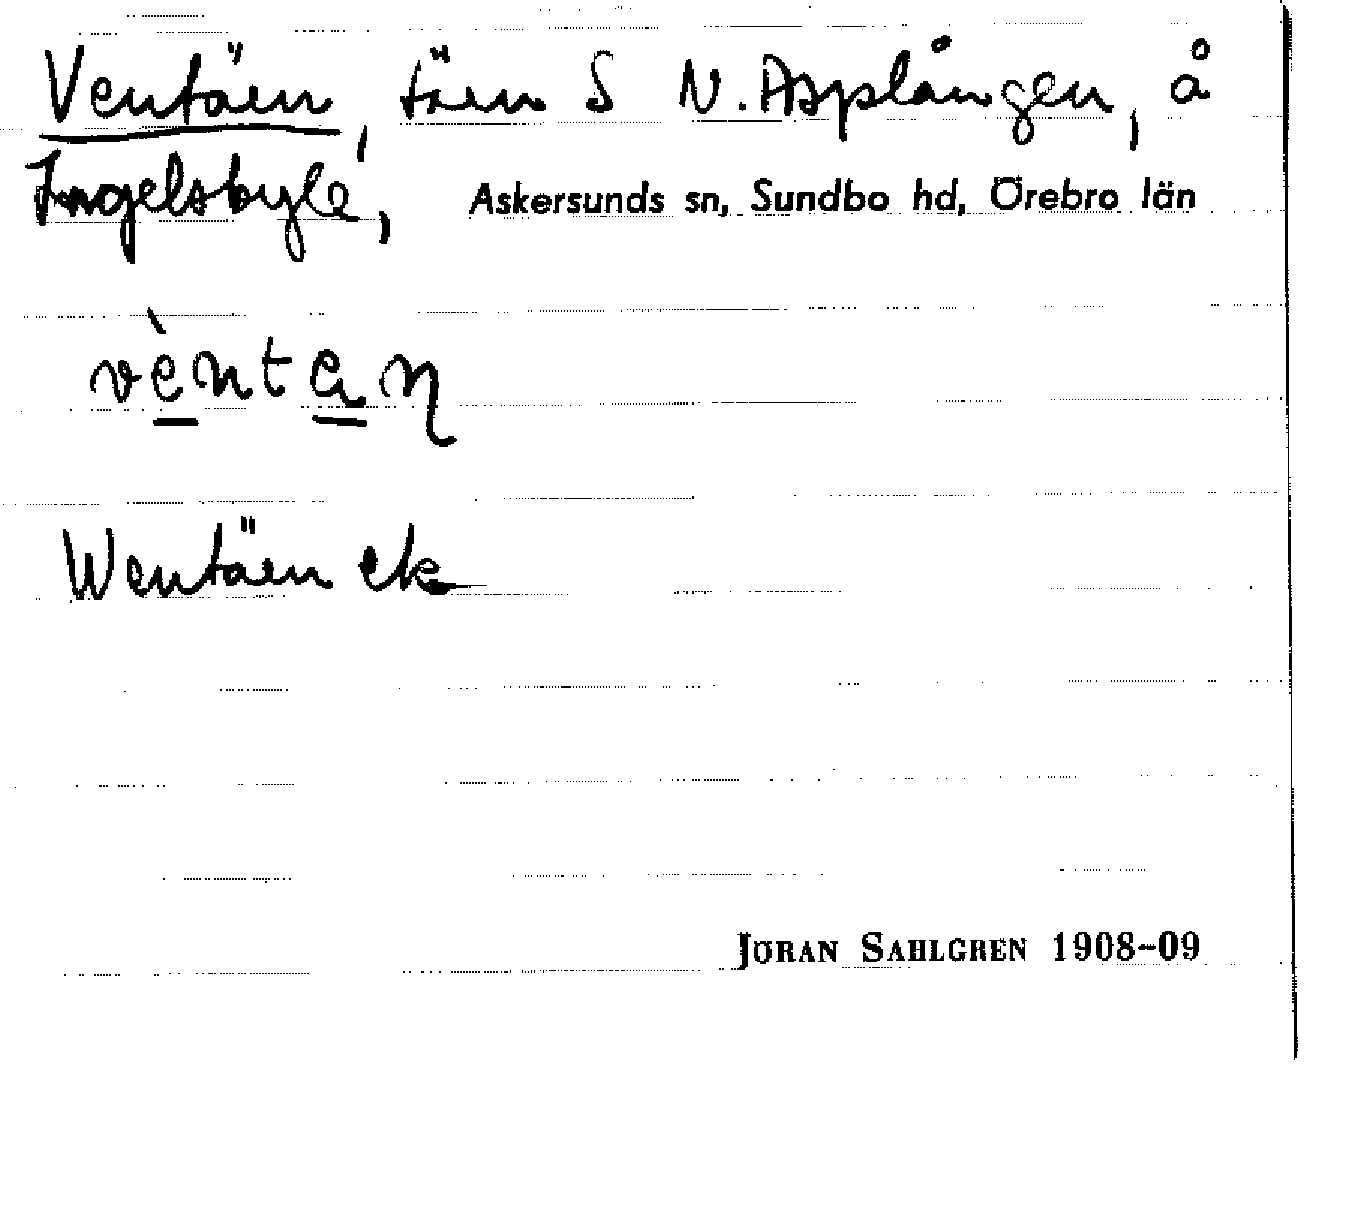 Ventäen, täen S N. Asplången, å
Ingelsbyle, Askersunds sn, Sundbo hd, Örebro län
vèntan
Wentäen ek
JÖRAN SAHLGREN 1908-09